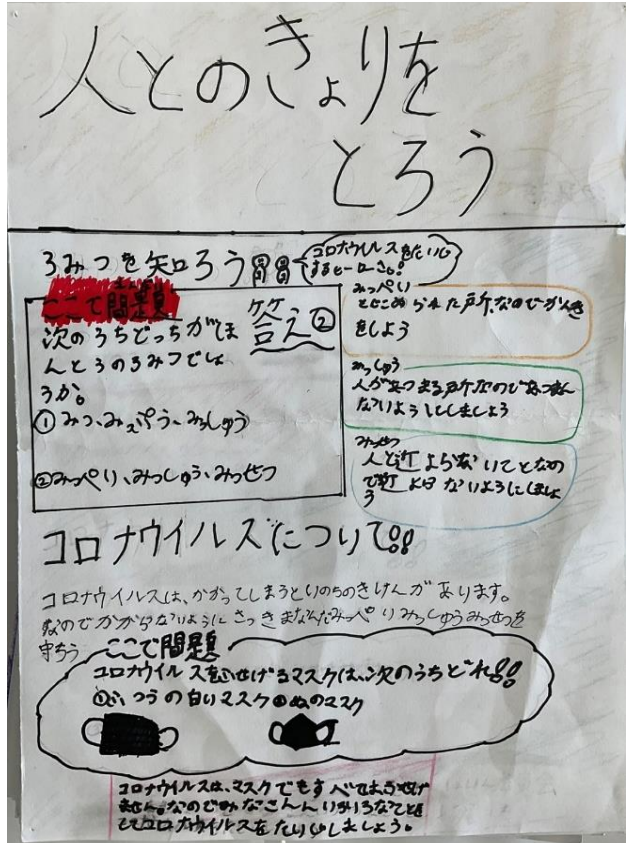 人とのきょりを
とろう
3みつを知ろう
コロナウイルスをたいじ
するヒーローさ。!
ここで問題
次のうちどっちがほ
んとうの3みつでしょ
うか。
①みつ、みっぷう、みっしゅう
②みっぺい、みっしゅう、みっせつ
答え②
みっぺい
とじこめられた所なのでかんき
をしよう
みっしゅう
人があつまる所なのであつまん
ないようにしましょう
みっせつ
人と近よらないてとなの
で近よらないようにしましょ
う
コロナウイルスについて!!
コロナウイルスは、かかってしまうといのちのきけんがあります。
なのでかからないようにさっきまなんだみっぺいみっしゅうみっせつを
守ろう
ここで問題
コロナウイルスをふせげるマスクは、次のうちどれ!!
①ふつうの白いマスク②ぬのマスク
コロナウイルスは、マスクでもすべてはふせげ
ません。なのでみなさんいろいろなことを
してコロナウイルスをたいじしましょう。